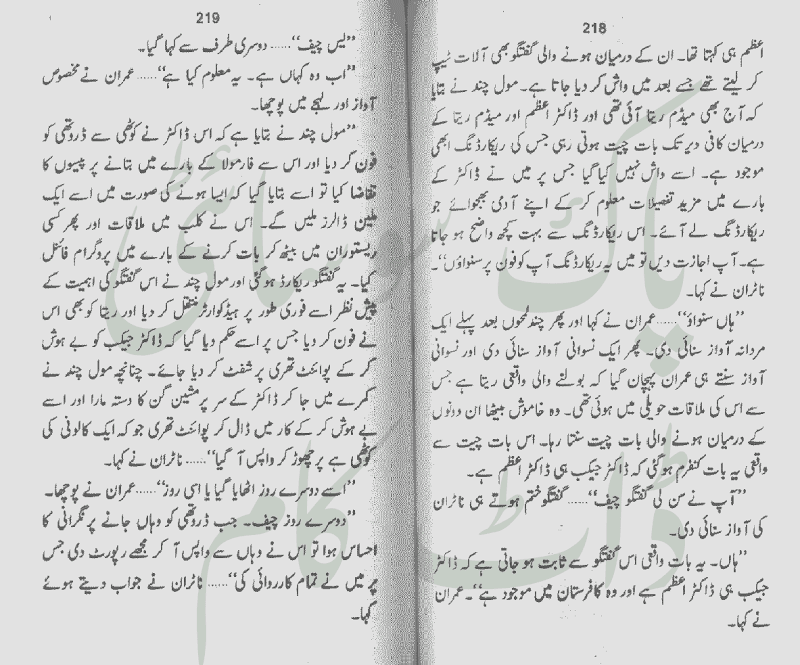 218
اعظم ہی کہتا تھا۔ ان کے درمیان ہونے والی گفتگو بھی آلات ٹیپ
کر لیتے تھے جسے بعد میں واش کر دیا جاتا ہے۔ مول چند نے بتایا
کہ آج بھی میڈم ریتا آئی تھی اور ڈاکٹر اعظم اور میڈم ریتا کے
درمیان کافی دیر تک بات چیت ہوتی رہی جس کی ریکارڈنگ ابھی
موجود ہے۔ اسے واش نہیں کیا گیا جس پر میں نے ڈاکٹر کے
بارے میں مزید تفصیلات معلوم کر کے اپنے آدمی بھجوائے جو
ریکارڈنگ لے آئے۔ اس ریکارڈنگ سے بہت کچھ واضح ہو جاتا
ہے۔ آپ اجازت دیں تو میں یہ ریکارڈنگ آپ کو فون پر سنواؤں“۔
ناٹران نے کہا۔
”ہاں سنواؤ“...... عمران نے کہا اور پھر چند لمحوں بعد پہلے ایک
مردانہ آواز سنائی دی۔ پھر ایک نسوانی آواز سنائی دی اور نسوانی
آواز سنتے ہی عمران پہچان گیا کہ بولنے والی واقعی ریتا ہے جس
سے اس کی ملاقات حویلی میں ہوئی تھی۔ وہ خاموش بیٹھا ان دونوں
کے درمیان ہونے والی بات چیت سنتا رہا۔ اس بات چیت سے
واقعی یہ بات کنفرم ہو گئی کہ ڈاکٹر جیکب ہی ڈاکٹر اعظم ہے۔
”آپ نے سن لی گفتگو چیف“...... گفتگو ختم ہوتے ہی ناٹران
کی آواز سنائی دی۔
”ہاں۔ یہ بات واقعی اس گفتگو سے ثابت ہو جاتی ہے کہ ڈاکٹر
جیکب ہی ڈاکٹر اعظم ہے اور وہ کافرستان میں موجود ہے“۔ عمران
نے کہا۔
219
”یس چیف“...... دوسری طرف سے کہا گیا۔
”اب وہ کہاں ہے۔ یہ معلوم کیا ہے“...... عمران نے مخصوص
آواز اور لہجے میں پوچھا۔
”مول چند نے بتایا ہے کہ اس ڈاکٹر نے کوٹھی سے ڈروتھی کو
فون کر دیا اور اس سے فارمولا کے بارے میں بتانے پر پیسوں کا
تقاضا کیا تو اسے بتایا گیا کہ ایسا ہونے کی صورت میں اسے ایک
ملین ڈالرز ملیں گے۔ اس نے کلب میں ملاقات اور پھر کسی
ریستوران میں بیٹھ کر بات کرنے کے بارے میں پروگرام فائنل
کیا۔ یہ گفتگو ریکارڈ ہو گئی اور مول چند نے اس گفتگو کی اہمیت کے
پیش نظر اسے فوری طور پر ہیڈکوارٹر منتقل کر دیا اور ریتا کو بھی اس
نے فون کر دیا جس پر اسے حکم دیا گیا کہ ڈاکٹر جیکب کو بے ہوش
کر کے پوائنٹ تھری پر شفٹ کر دیا جائے۔ چنانچہ مول چند نے
کمرے میں جا کر ڈاکٹر کے سر پر مشین گن کا دستہ مارا اور اسے
بے ہوش کر کے کار میں ڈال کر پوائنٹ تھری جو کہ ایک کالونی کی
کوٹھی ہے پر چھوڑ کر واپس آ گیا“...... ناٹران نے کہا۔
”اسے دوسرے روز اٹھایا گیا یا اسی روز“...... عمران نے پوچھا۔
”دوسرے روز چیف۔ جب ڈروتھی کو وہاں جانے پر نگرانی کا
احساس ہوا تو اس نے وہاں سے واپس آ کر مجھے رپورٹ دی جس
پر میں نے تمام کارروائی کی“...... ناٹران نے جواب دیتے ہوئے
کہا۔